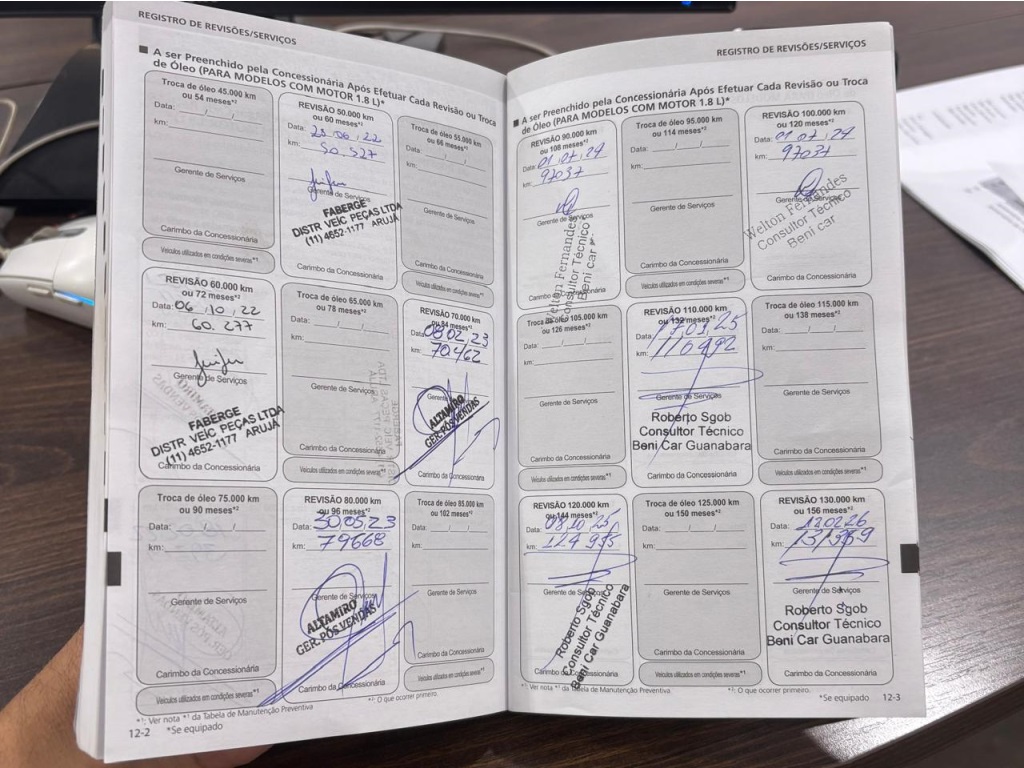 REGISTRO DE REVISÕES/SERVIÇOS
■ A ser Preenchido pela Concessionária Após Efetuar Cada Revisão ou Troca
de Óleo (PARA MODELOS COM MOTOR 1.8 L)*
Troca de óleo 45.000 km
ou 54 meses*²
Data: / /
km:
Gerente de Serviços
Carimbo da Concessionária
Veículos utilizados em condições severas*¹
REVISÃO 50.000 km
ou 60 meses*²
Data: 28.06.22
km: 50.527
Gerente de Serviços
FABERGE
DISTR VEÍC PEÇAS LTDA
(11) 4652-1177 ARUJÁ
Carimbo da Concessionária
Troca de óleo 55.000 km
ou 66 meses*²
Data: / /
km:
Gerente de Serviços
Carimbo da Concessionária
Veículos utilizados em condições severas*¹
REVISÃO 60.000 km
ou 72 meses*²
Data: 06.10.22
km: 60.277
Gerente de Serviços
FABERGE
DISTR VEÍC PEÇAS LTDA
(11) 4652-1177 ARUJÁ
Carimbo da Concessionária
Troca de óleo 65.000 km
ou 78 meses*²
Data: / /
km:
Gerente de Serviços
Carimbo da Concessionária
Veículos utilizados em condições severas*¹
REVISÃO 70.000 km
ou 84 meses*²
Data: 08.02.23
km: 70.462
Gerente de Serviços
ALTAMIRO
GER. PÓS VENDAS
Carimbo da Concessionária
Troca de óleo 75.000 km
ou 90 meses*²
Data: / /
km:
Gerente de Serviços
Carimbo da Concessionária
Veículos utilizados em condições severas*¹
REVISÃO 80.000 km
ou 96 meses*²
Data: 30.05.23
km: 79668
Gerente de Serviços
ALTAMIRO
GER. PÓS VENDAS
Carimbo da Concessionária
Troca de óleo 85.000 km
ou 102 meses*²
Data: / /
km:
Gerente de Serviços
Carimbo da Concessionária
Veículos utilizados em condições severas*¹
*¹: Ver nota *¹ da Tabela de Manutenção Preventiva
*²: O que ocorrer primeiro.
12-2 *Se equipado
REGISTRO DE REVISÕES/SERVIÇOS
■ A ser Preenchido pela Concessionária Após Efetuar Cada Revisão ou Troca
de Óleo (PARA MODELOS COM MOTOR 1.8 L)*
REVISÃO 90.000 km
ou 108 meses*²
Data: 01.07.24
km: 97037
Gerente de Serviços
Welton Fernandes
Consultor Técnico
Beni car
Carimbo da Concessionária
Troca de óleo 95.000 km
ou 114 meses*²
Data: / /
km:
Gerente de Serviços
Carimbo da Concessionária
Veículos utilizados em condições severas*¹
REVISÃO 100.000 km
ou 120 meses*²
Data: 01.07.24
km: 97037
Gerente de Serviços
Welton Fernandes
Consultor Técnico
Beni car
Carimbo da Concessionária
Troca de óleo 105.000 km
ou 126 meses*²
Data: / /
km:
Gerente de Serviços
Carimbo da Concessionária
Veículos utilizados em condições severas*¹
REVISÃO 110.000 km
ou 132 meses*²
Data:
km: 110992
Gerente de Serviços
Roberto Sgob
Consultor Técnico
Beni Car Guanabara
Carimbo da Concessionária
Troca de óleo 115.000 km
ou 138 meses*²
Data: / /
km:
Gerente de Serviços
Carimbo da Concessionária
Veículos utilizados em condições severas*¹
REVISÃO 120.000 km
ou 144 meses*²
Data: 08.10.25
km:
Gerente de Serviços
Roberto Sgob
Consultor Técnico
Beni Car Guanabara
Carimbo da Concessionária
Troca de óleo 125.000 km
ou 150 meses*²
Data: / /
km:
Gerente de Serviços
Carimbo da Concessionária
Veículos utilizados em condições severas*¹
REVISÃO 130.000 km
ou 156 meses*²
Data: 120226
km:
Gerente de Serviços
Roberto Sgob
Consultor Técnico
Beni Car Guanabara
Carimbo da Concessionária
*¹: Ver nota *¹ da Tabela de Manutenção Preventiva
*²: O que ocorrer primeiro.
*Se equipado 12-3